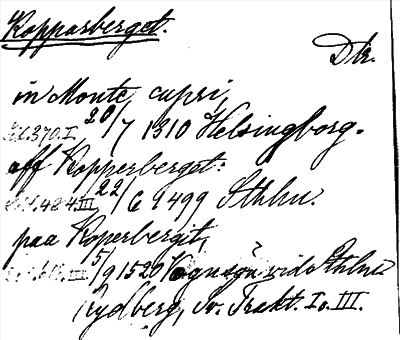 Kopparberget.
Dtr.
in Monte cupri,
20/7 1310 Helsingborg.
aff Kopperberget:
22/6 1499 Sthlm.
paa Koperbergit,
5/9 1520 Kognsön vid Sthlm
Rydberg, Sv. Trakt. I o. III.